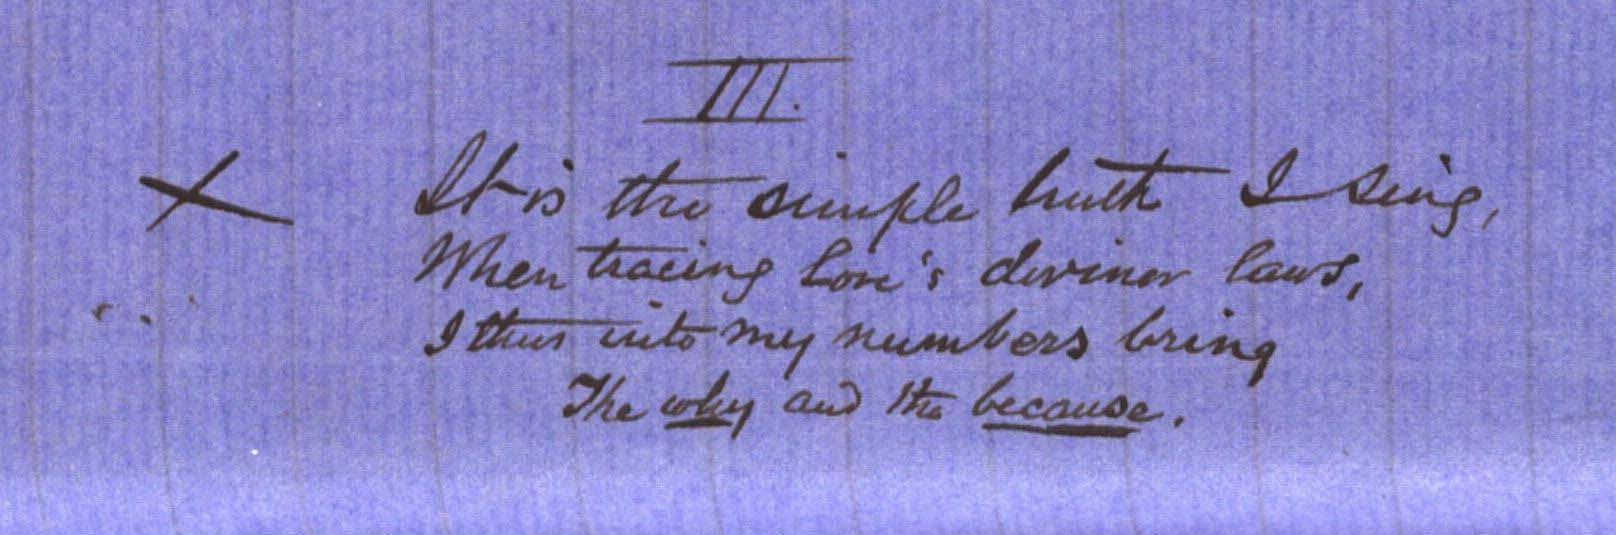 III.
It is the simple truth I sing,
When tracing Love's diviner laws,
I thus into my numbers bring
The why and the because.